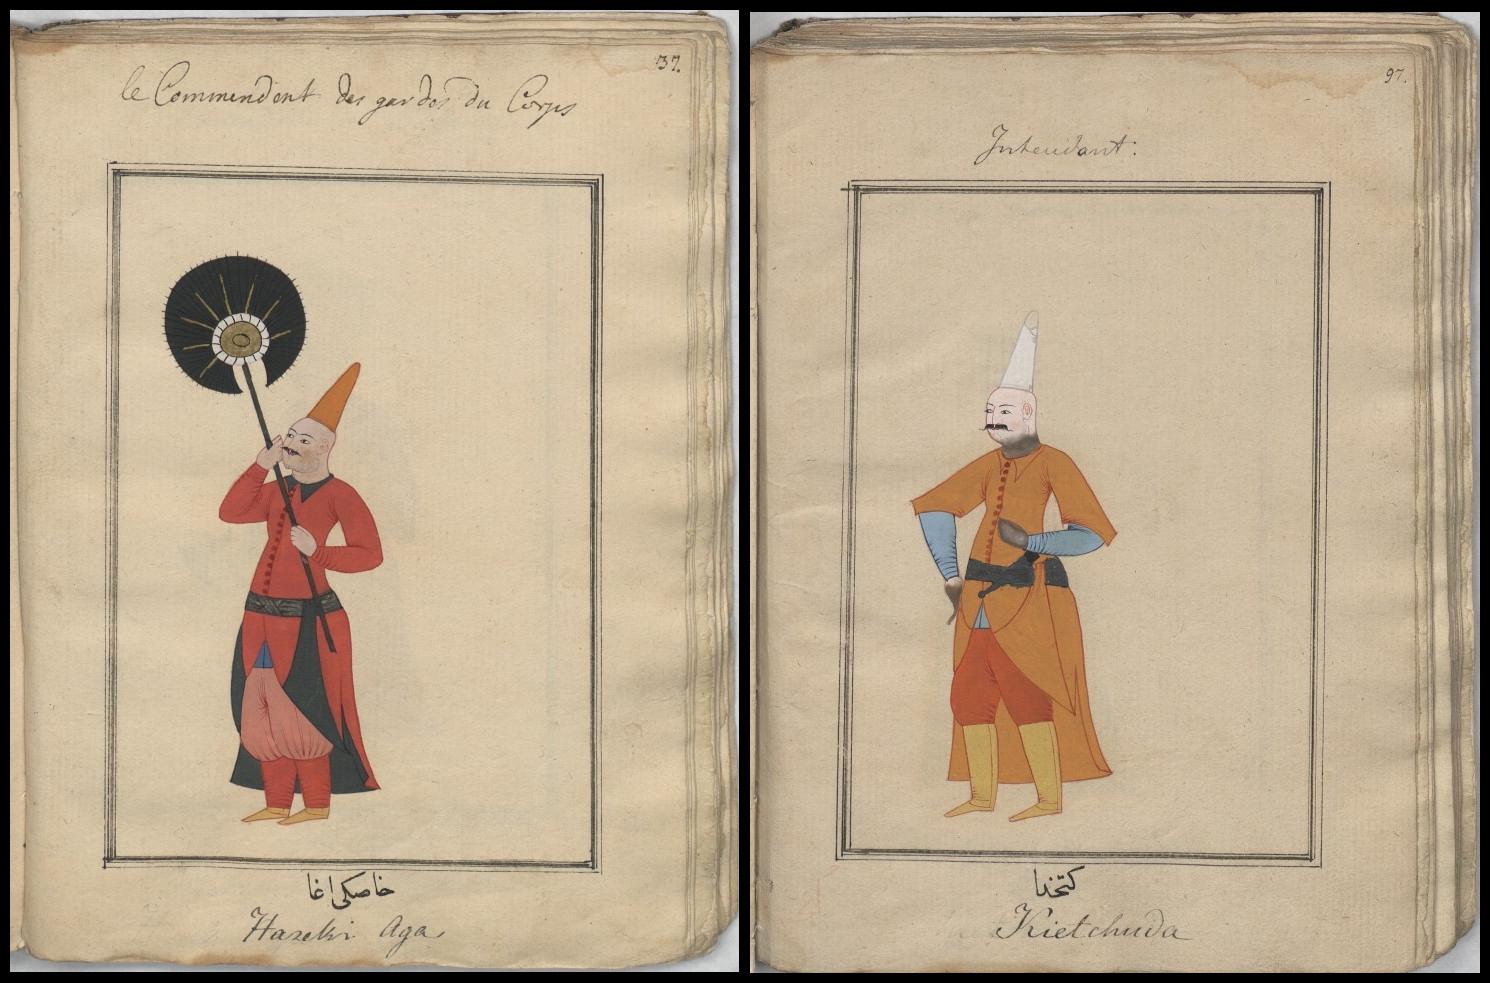 37.
le Commendent des gardes du Corps
خاصكی اغا
Haseki Aga.
97.
Intendant.
كتخدا
Kietchuda